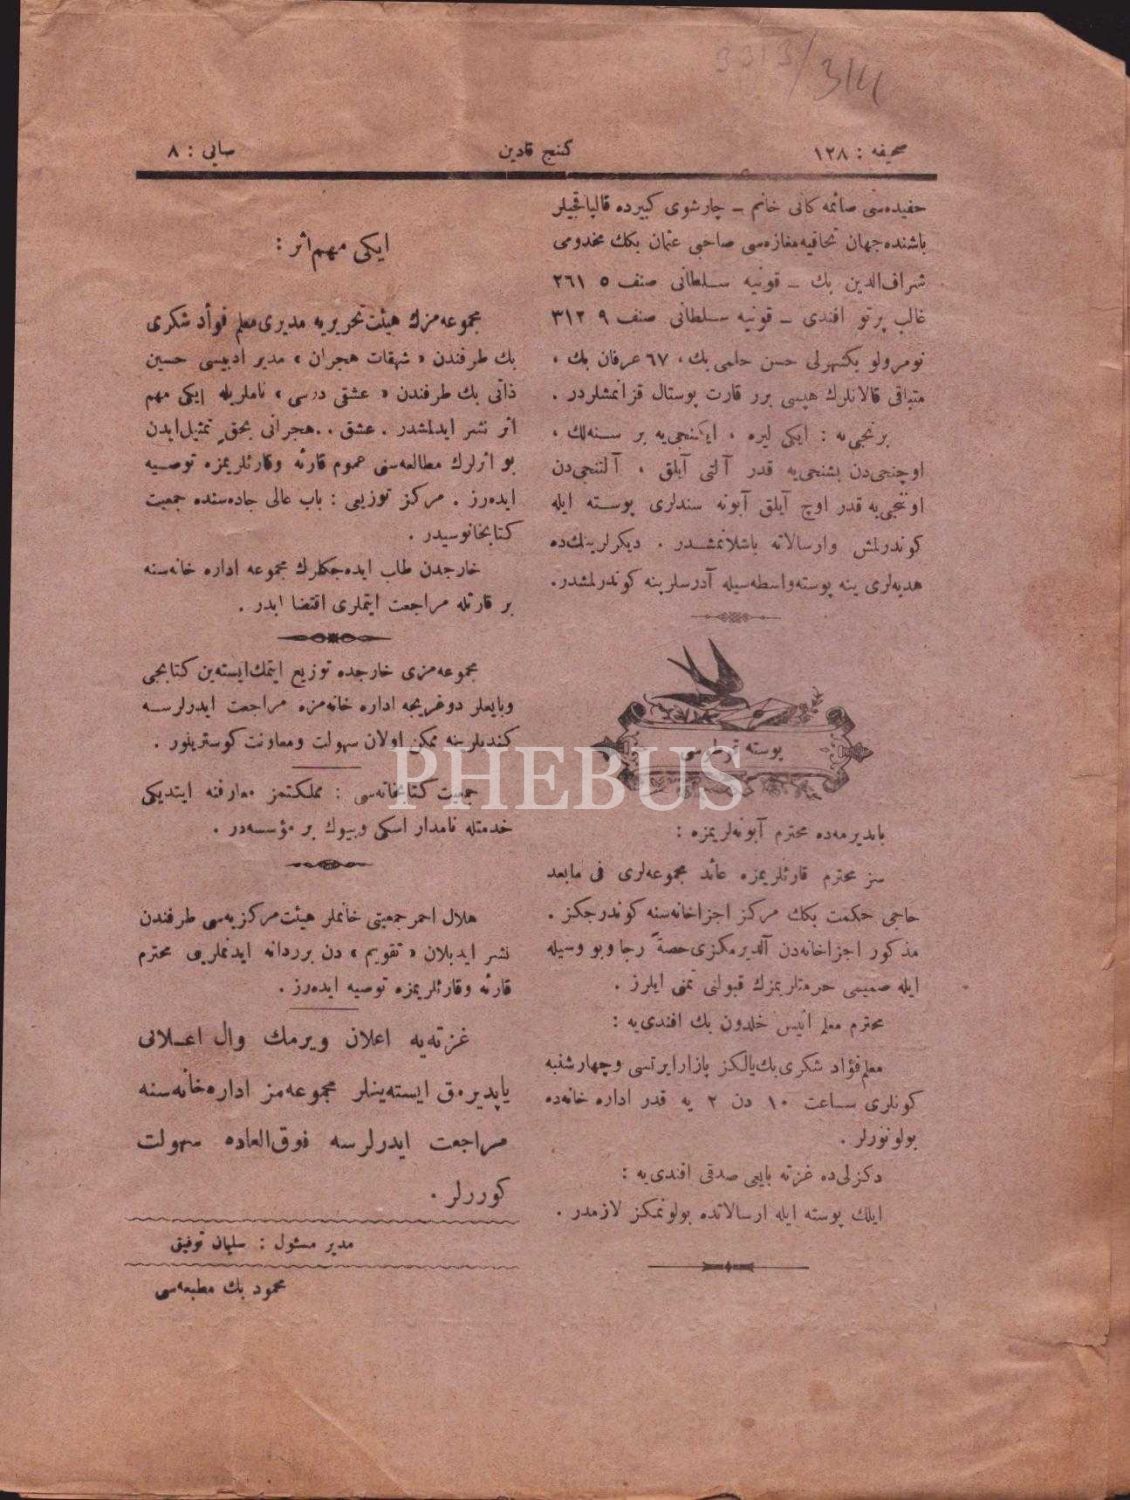 صحیفه : ١٢٨
كنج قادین
صایی : ٨
حفیده‌سی صائمه كانی خانم ــ چارشوی كبیرده قالپاقجیلر
باشنده جهان تحافیه مغازه‌سی صاحبی عثمان بكك مخدومی
شراف‌الدین بك ــ قونیه سلطانی صنف ٥ ٢٦١
غالب پرتو افندی ــ قونیه سلطانی صنف ٩ ٣١٢
نومرولو بكشهرلی حسن حلمی بك ، ٦٧ عرفان بك ،
متباقی قالانلرك هپسی برر قارت پوستال قزانمشلردر .
برنجی‌یه : ایكی لیره ، ایكنجی‌یه بر سنه‌لك ،
اوچنجی‌دن بشنجی‌یه قدر آلتی آیلق ، آلتنجی‌دن
اوننجی‌یه قدر اوچ آیلق آبونه سندلری پوسته ایله
كوندرلمش وارسالاته باشلانمشدر . دیكرلرینك‌ده
هدیه‌لری ینه پوسته واسطه‌سیله آدرسلرینه كوندرلمشدر.
پوسته قوطوسی
باندیرمه‌ده محترم آبونه‌لریمزه :
سز محترم قارئلریمزه عائد مجموعه‌لری فی مابعد
حاجی حكمت بكك مركز اجزاخانه‌سنه كوندرجكز .
مذكور اجزاخانه‌دن آلدیرمكزی خصة رجا وبو وسیله
ایله صمیمی حرمتلریمزك قبولنی تمنی ایلرز .
محترم معلم انیس خلدون بك افندی‌یه :
معلم فؤاد شكری بك یالكز پازارایرتسی وچهارشنبه
كونلری ساعت ١٠ دن ٢ یه قدر اداره خانه‌ده
بولونورلر .
دكزلی‌ده غزته بایعی صدقی افندی‌یه :
ایلك پوسته ایله ارسالاتده بولونمكز لازمدر .
ایكی مهم اثر :
مجموعه‌مزك هیئت تحریریه مدیری معلم فوأد شكری
بك طرفندن « شهقات هجران » مدیر ادبیسی حسین
ذاتی بك طرفندن « عشقی درسی » ناملریله ایكی مهم
اثر نشر ایدلمشدر . عشق .. هجرانی بحق تمثیل ایدن
بو اثرلرك مطالعه‌سنی عموم قارئه وقارئلریمزه توصیه
ایده‌رز . مركز توزیعی : باب عالی جاده‌سنده جمعیت
كتابخانه‌سیدر .
خارجدن طلب ایده‌جكلرك مجموعه اداره خانه‌سنه
بر قارتله مراجعت ایتملری اقتضا ایدر .
مجموعه‌مزی خارجده توزیع ایتمك ایسته‌ین كتابجی
وبایعلر دوغریجه اداره خانه‌مزه مراجعت ایدرلرسه
كندیلرینه ممكن اولان سهولت ومعاونت كوستریلور .
جمعیت كتابخانه‌سی : مملكتمز معارفنه ایتدیكی
خدمتله نامدار اسكی وبیوك بر مؤسسه‌در .
هلال احمر جمعیتی خانملر هیئت مركزیه‌سی طرفندن
نشر ایدیلان « تقویم » دن برردانه ایدنملرینی محترم
قارئه وقارئلریمزه توصیه ایده‌رز .
غزته‌یه اعلان ویرمك وال اعلانی
یاپدیرمق ایسته‌ینلر مجموعه‌مز اداره‌خانه‌سنه
مراجعت ایدرلرسه فوق‌العاده سهولت
كوررلر .
مدیر مسئول : سلیمان توفیق
محمود بك مطبعه‌سی
PHEBUS